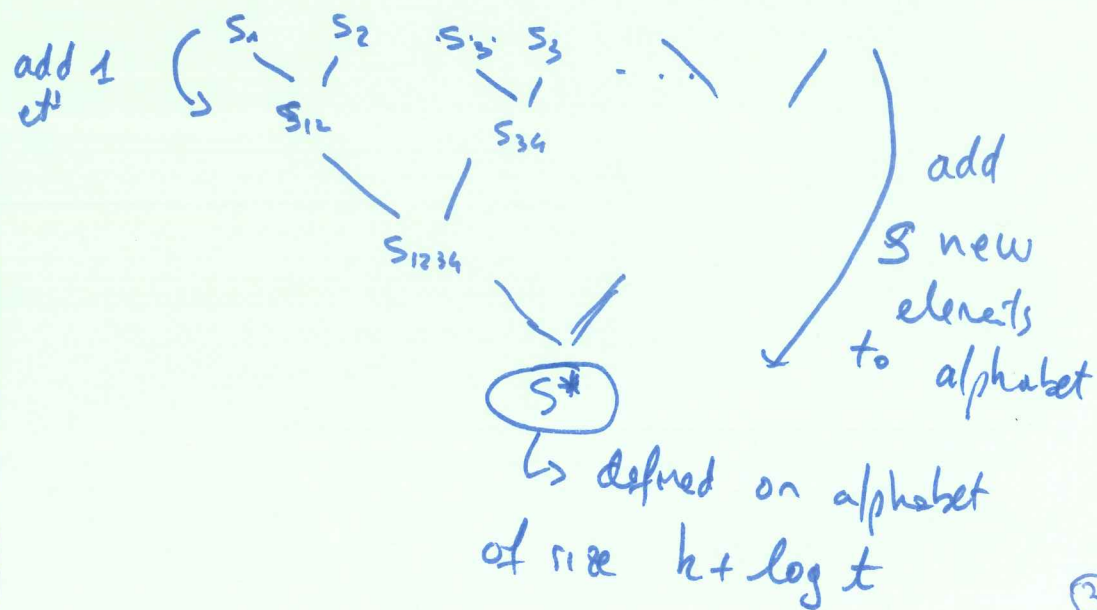 S₁ S₂ S₃ S₃ ...
add 1
elᵗ
S₁₂ S₃₄
S₁₂₃₄
add
S new
elements
to alphabet
S*
↳ defined on alphabet
of size k + log t